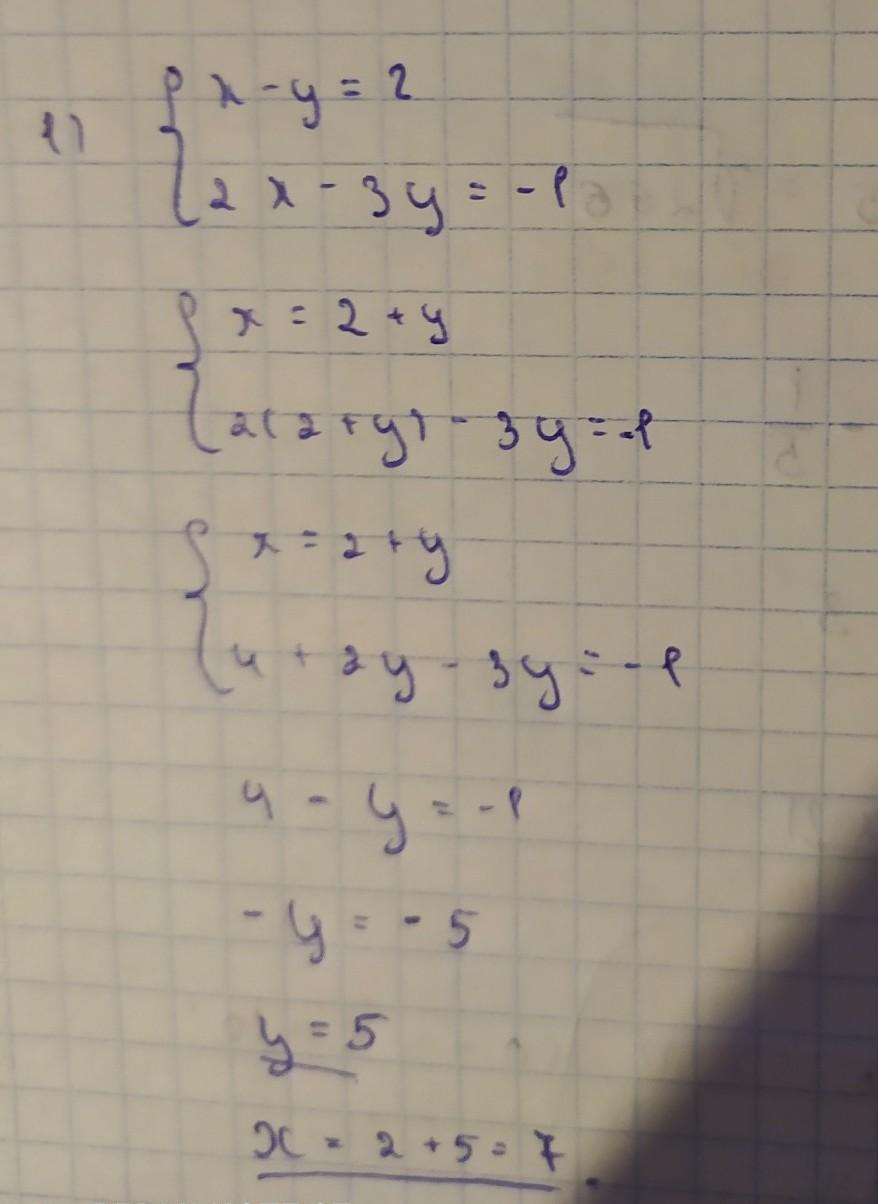 1) x - y = 2
2x - 3y = -1
x = 2 + y
2(2 + y) - 3y = -1
x = 2 + y
4 + 2y - 3y = -1
4 - y = -1
- y = - 5
y = 5
x = 2 + 5 = 7.